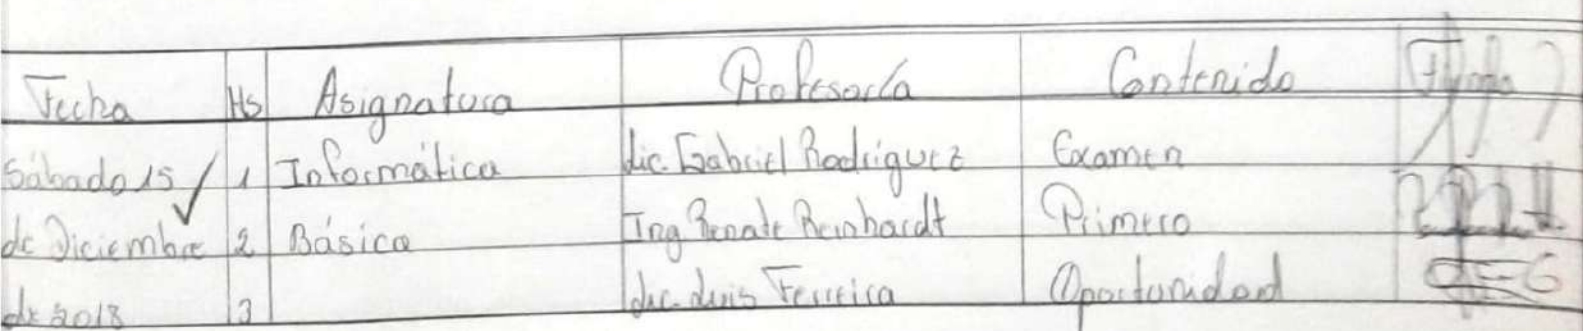 Fecha Hs Asignatura Profesor/a Contenido Firma
Sábado 15 1 Informática Lic. Gabriel Rodriguez Examen
de Diciembre 2 Básica Ing Renate Reinhardt Primera
de 2018 3 Lic. Luis Ferreira Oportunidad